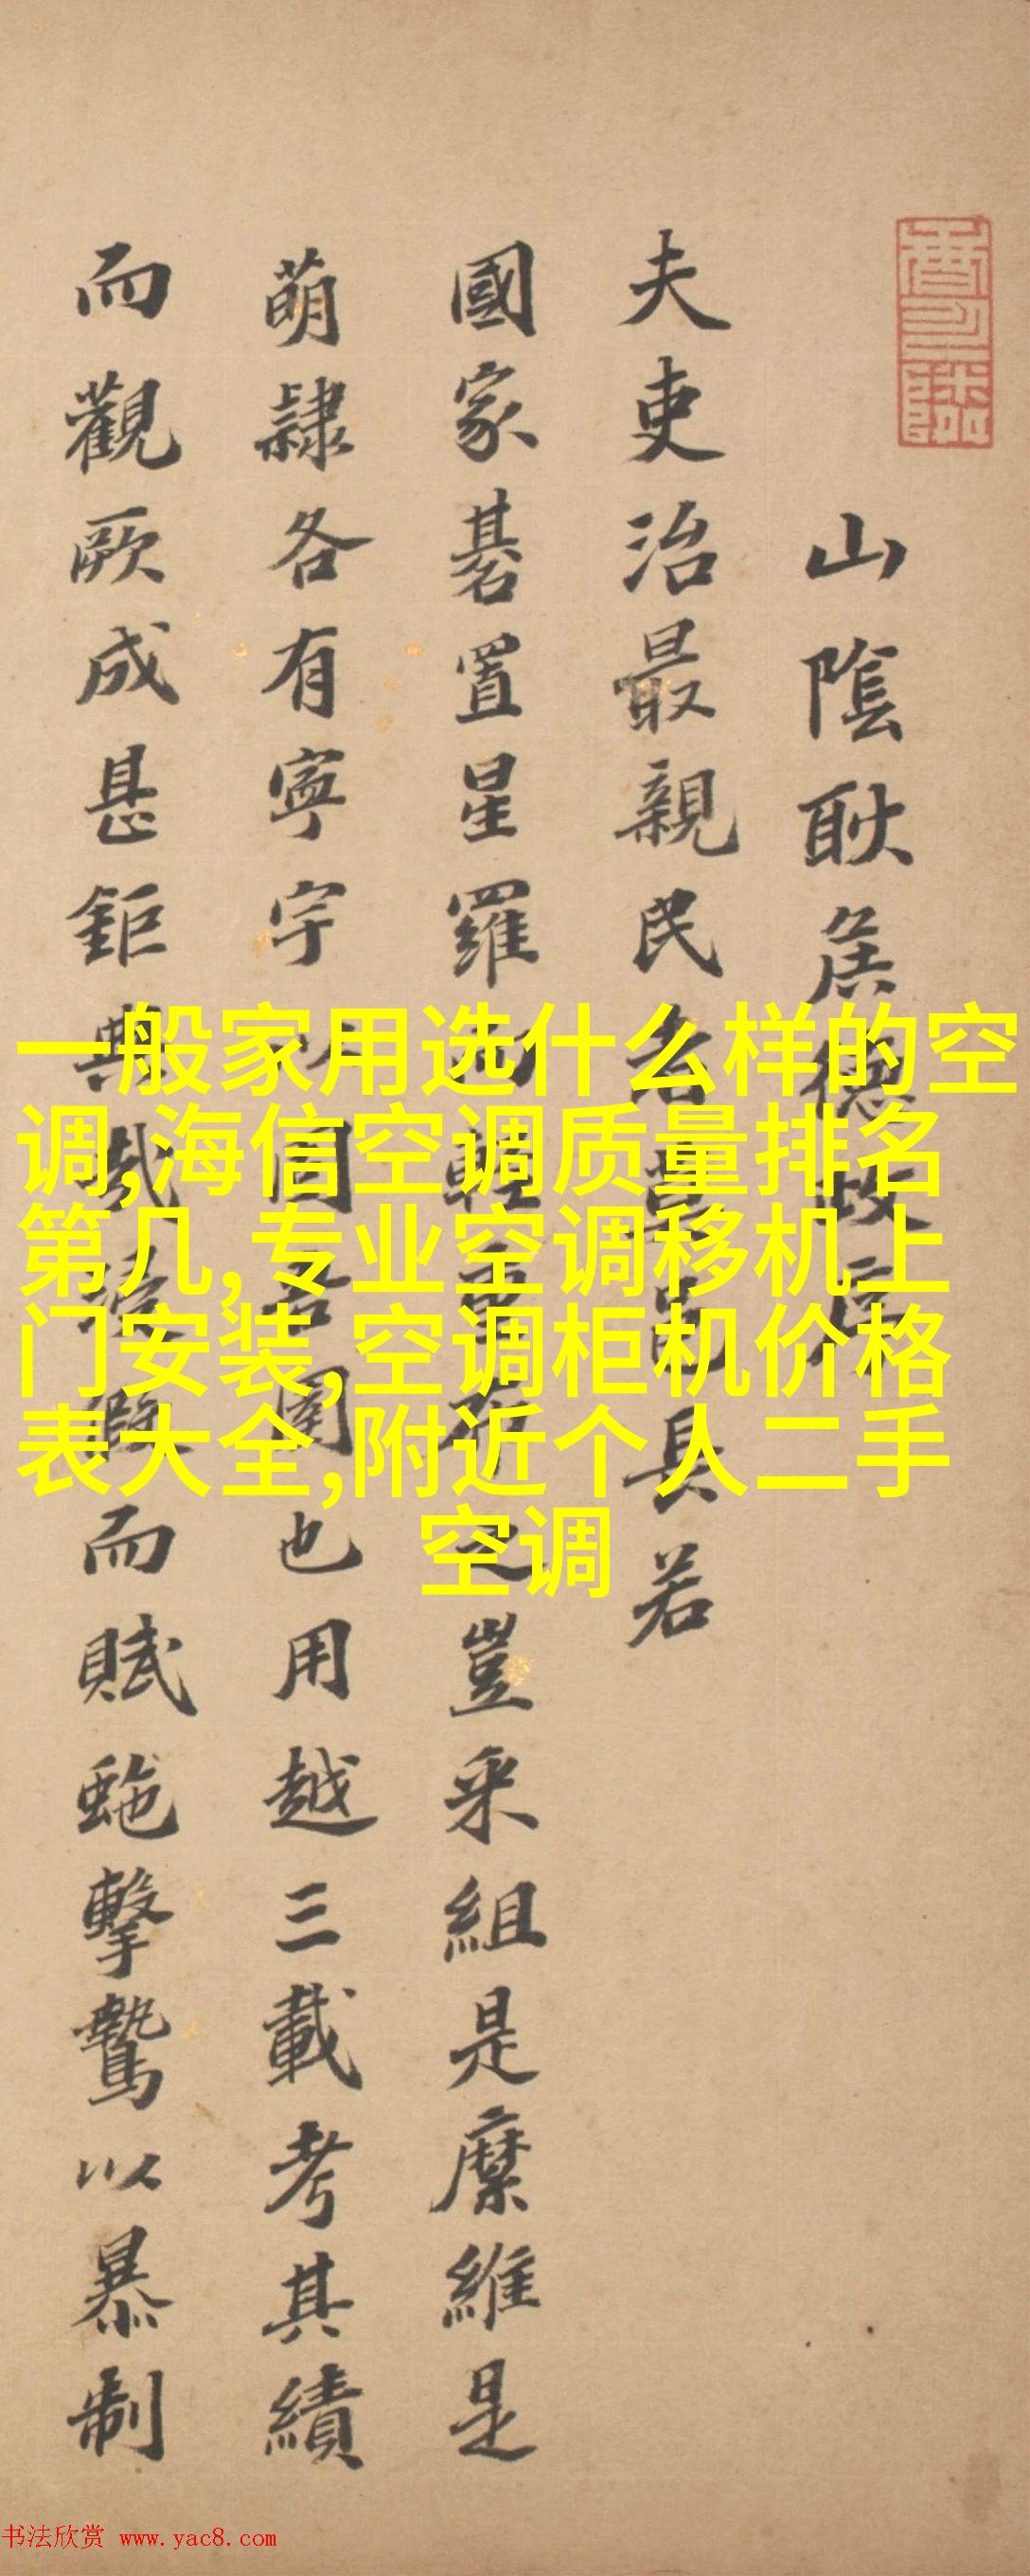 山陰耿侯德政序
夫吏治最親民者莫邑具若
國家碁置星羅
豈采組是縻維是
萌隷各有寧宇以固吾圉也用越三載考其績
而觀厥成甚鉅
而賦虣擊鷙以暴制
一般家用选什么样的空
调,海信空调质量排名
第几,专业空调移机上
门安装,空调柜机价格
表大全,附近个人二手
空调
书法欣赏 www.yac8.com